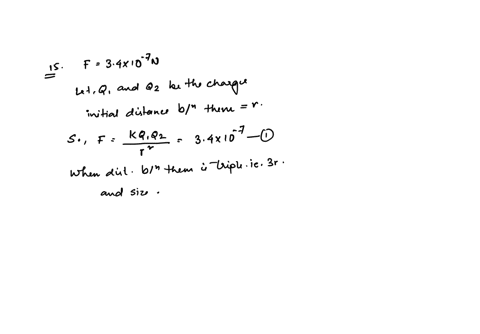 15. F = 3.4×10⁻⁷N
let, Q₁ and Q₂ be the charges
initial distance b/n them = r.
So, F = KQ₁Q₂/r² = 3.4×10⁻⁷ —①
When dist. b/n them is triple. ie. 3r.
and size .